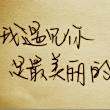 我遇见你
是最美丽的